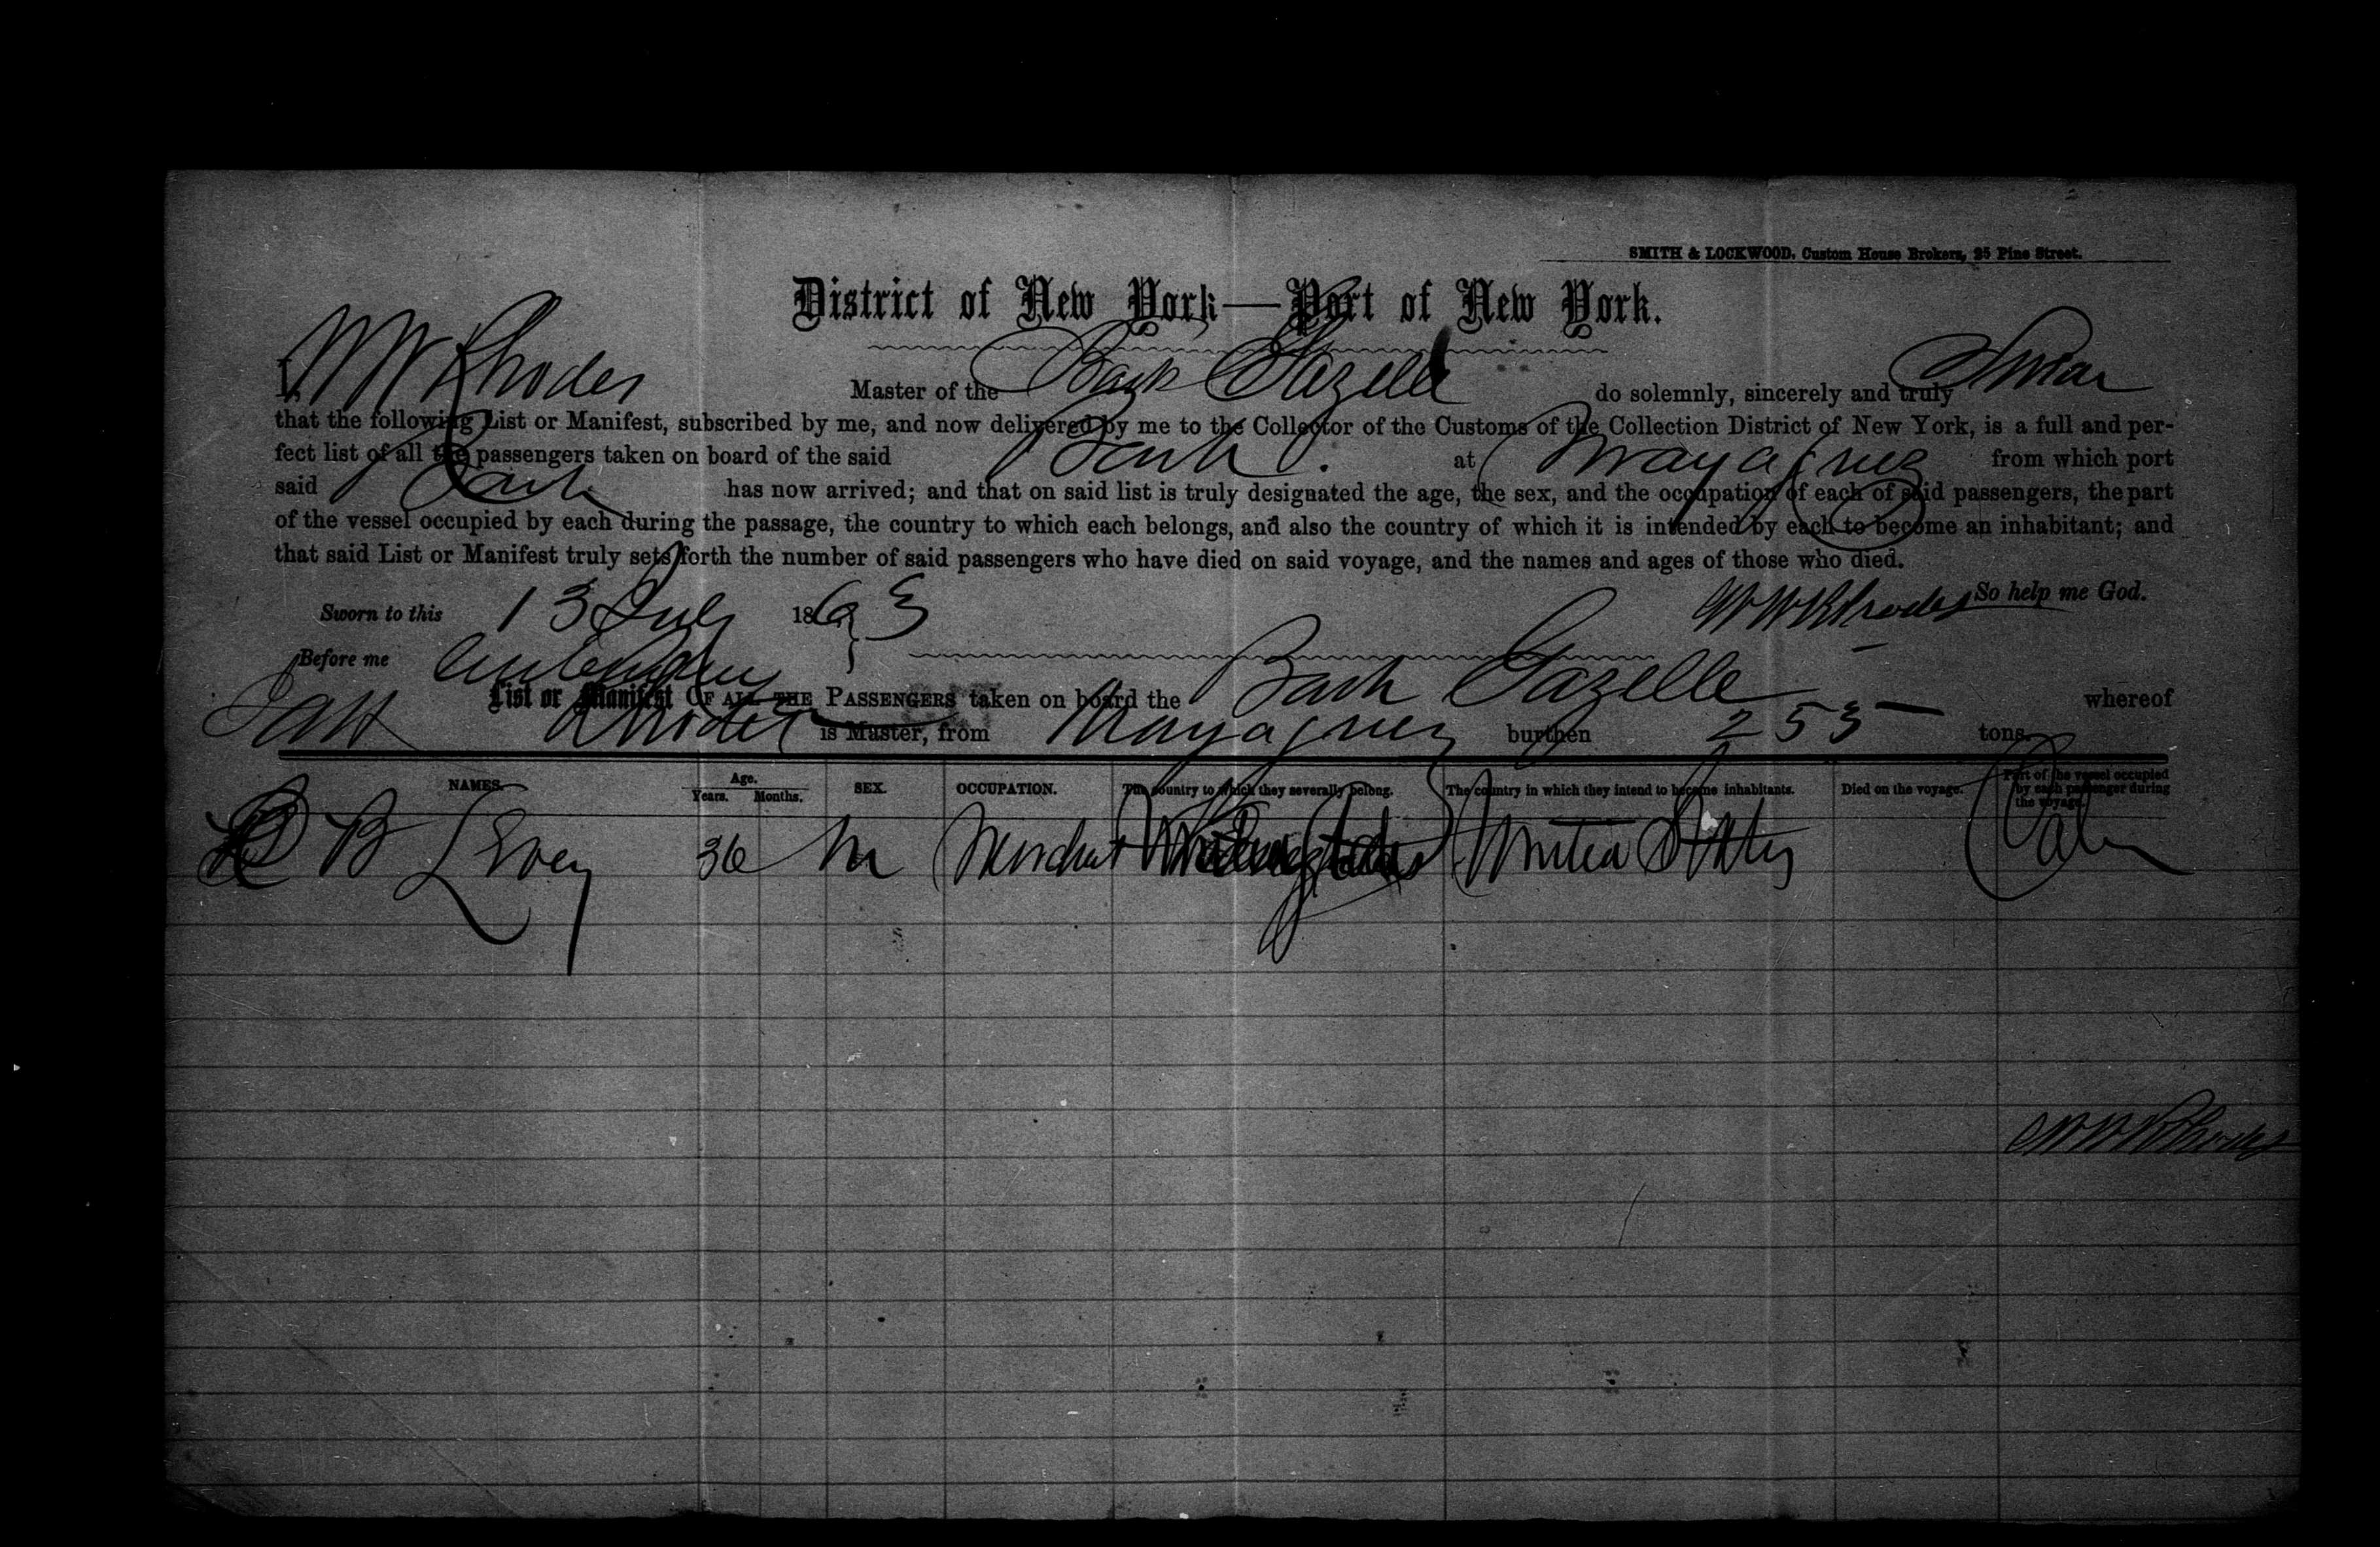 SMITH & LOCKWOOD, Custom House Brokers, 25 Pine Street.
District of New York—Port of New York.
I, W W Rhodes Master of the Bark Gazelle do solemnly, sincerely and truly Swear
that the following List or Manifest, subscribed by me, and now delivered by me to the Collector of the Customs of the Collection District of New York, is a full and per-
fect list of all the passengers taken on board of the said Bark at Mayaguez from which port
said Bark has now arrived; and that on said list is truly designated the age, the sex, and the occupation of each of said passengers, the part
of the vessel occupied by each during the passage, the country to which each belongs, and also the country of which it is intended by each to become an inhabitant; and
that said List or Manifest truly sets forth the number of said passengers who have died on said voyage, and the names and ages of those who died.
So help me God.
Sworn to this 13 July 1863 W W Rhodes
Before me
List or Manifest OF ALL THE PASSENGERS taken on board the Bark Gazelle whereof
Rhodes is Master, from Mayaguez burthen 253 tons.
NAMES. Age. Years. Months. SEX. OCCUPATION. The country to which they severally belong. The country in which they intend to become inhabitants. Died on the voyage. Part of the vessel occupied by each passenger during the voyage.
B Levey 36 M Merchant United States Cabin
W W Rhodes